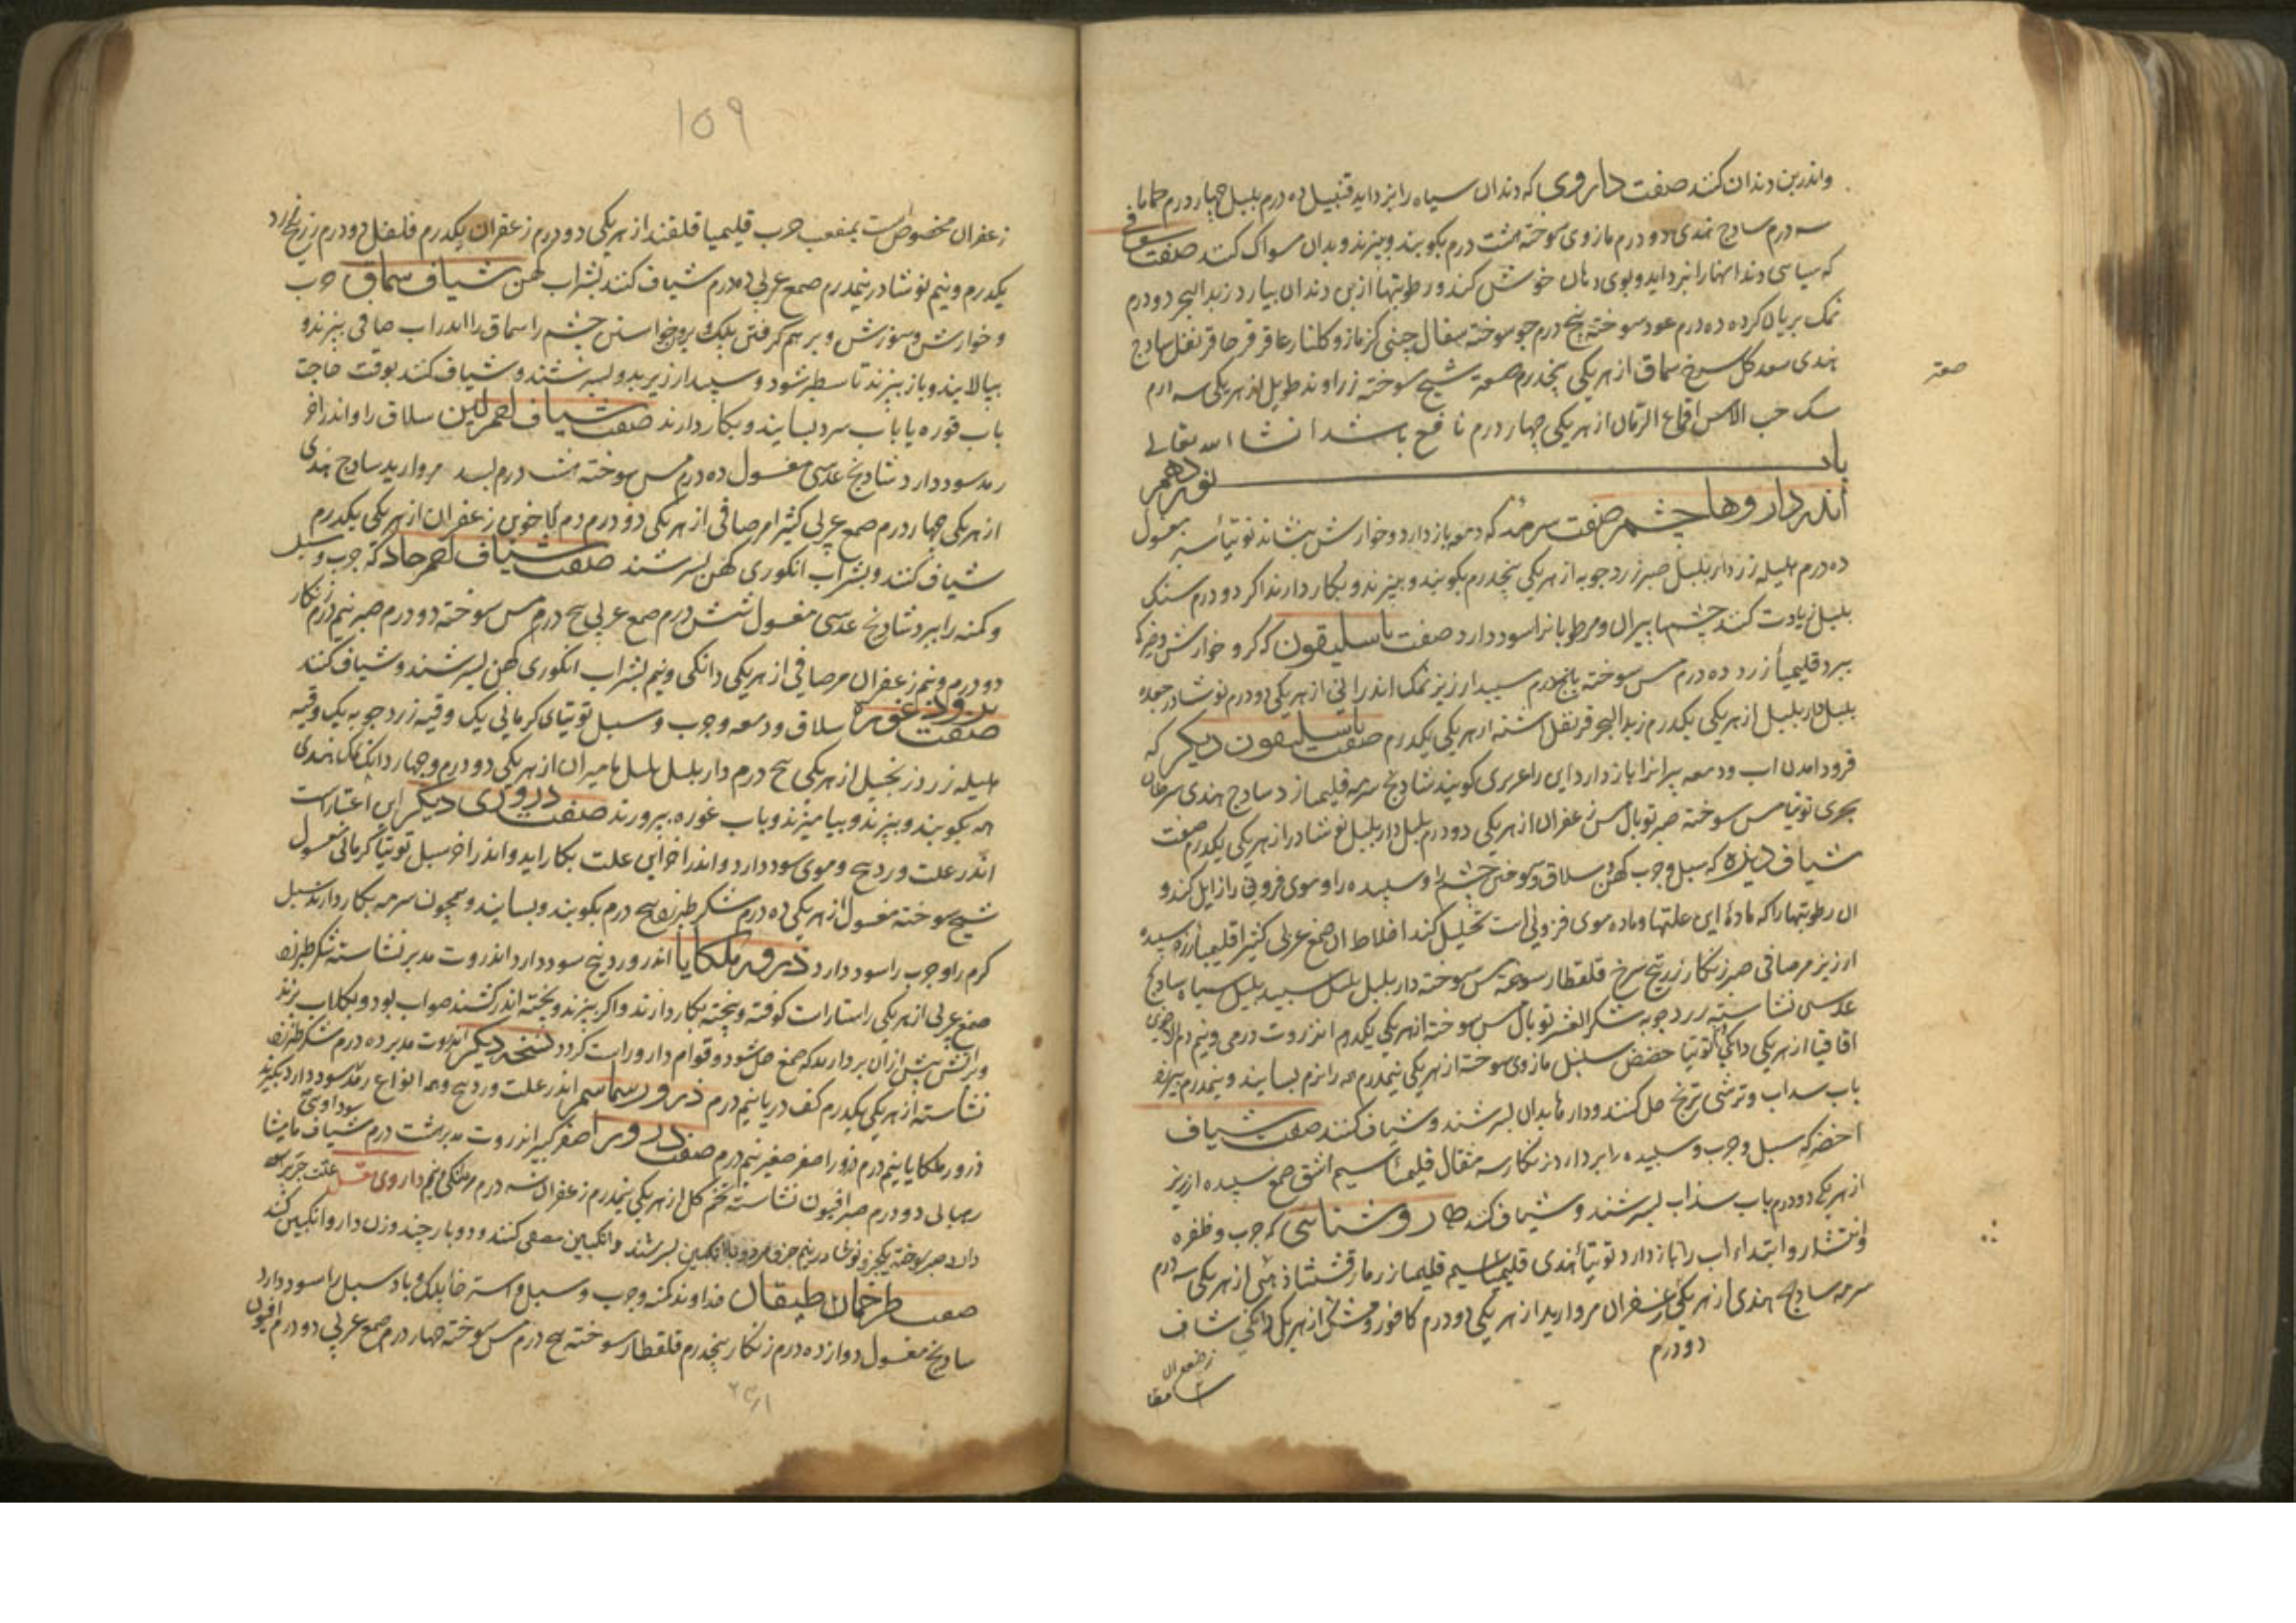 واندر بن دندان کنند صفت داروی که دندان سیاه را بزداید قنبیل ده درم بلبل چهار درم حماما
سه درم سادج هندی دو درم مازوی سوخته هشت درم بکوبند وببیزند وبدان مسواک کنند صفت سفوفی
که سیاسی دندانها را ببرد اید وبوی دهان خوش کند ورطوبتها از بن دندان بیارد زبد البحر دو درم
نمک بریان کرده ده درم عود سوخته پنج درم جو سوخته سفال چینی کزمازو کلنار عاقر قرحا قرنفل سادج
هندی سعد کل سرخ سماق از هریکی پنجدرم صعتر شیح سوخته زراوند طویل از هریکی سه درم
سک حب الاس اقماع الرمان از هریکی چهار درم نافع باشد انشا الله تعالی
صعتر
باب نوزدهم
اندر داروها چشم صفت سرمه که دمعه باز دارد وخوارش بنشاند توتیا سبز مغسول
ده درم هلیله زرد دار بلبل صبر زرد جوبه از هریکی پنجدرم بکوبند وببیزند وبکار دارند اکر دو درم سنک
بلبل زیادت کنند چشمها پیران ومرطوبانرا سود دارد صفت باسلیقون که کر وخوارش
ببرد قلیمیا زرد ده درم مس سوخته پانجدرم سپیدارزیز نمک اندرانی از هریکی دو درم نوشادر جعده
بلبل دار بلبل از هریکی یکدرم زبد البحر قرنفل اشنه از هریکی یکدرم صفت باسلیقون دیکر که
فرود امدن اب ودمعه پیرانرا باز دارد این را عزیزی کویند شادنج سرمه قلیمیا زر سادج هندی سرطان
بحری توتیا مس سوخته صبر توبال مس زعفران از هریکی دو درم بلبل دار بلبل نوشادر از هریکی یکدرم صفت
شیاف دیزه که سبل وجرب کهن وسلاق وسوختن چشم را وسپیده را وموی فزونی را زایل کند و
ان رطوبتها را که مادهٔ این علتها وماده موی فزونی است تحلیل کند اخلاط ان صمغ عربی کثیرا قلیمیا زر سپیده
ارزیز مر صافی صبر زنکار زرنیخ سرخ قلقطار سوخته مس سوخته دار بلبل بلبل سپید بلبل سیاه سادنج
عدسی نشاسته زرد جوبه شکر العشر توبال مس سوخته از هریکی یکدرم انزروت درمی ونیم دم الاخوین
اقاقیا از هریکی دانکی توتیا حضض سنبل مازوی سوخته از هریکی نیمدرم همه را نرم بسایند ونیمدرم بیرزه
باب سداب وترشی ترنج حل کنند وداروها بدان بسرشند وشیاف کنند صفت شیاف
اخضر که سبل وجرب وسپیده را بردارد زنکار سه مثقال قلیمیا سیم اشق صمغ سپیده ارزیز
از هریکی دو درم باب سذاب بسرشند وشیاف کنند روشنایی که جرب وظفره
وانتشار وابتداء اب را باز دارد توتیا هندی قلیمیا سیم قلیمیا زر مارقشیشا ذهبی از هریکی سه درم
سرمه سادج هندی از هریکی زعفران مروارید از هریکی دو درم کافور ومشک از هریکی دانکی شیاف
دو درم
زعفران
۱۵۹
زعفران مخصوص است بمنفعت جرب قلیمیا قلقند از هریکی دو درم زعفران یکدرم فلفل دو درم زرنیخ زرد
یکدرم ونیم نوشادر نیمدرم صمغ عربی ده درم شیاف کنند بشراب کهن شیاف سماق جرب
وخوارش وسوزش وبرهم کرفتن پلک وبرخواستن چشم را سماق را اندر اب صافی بپزند و
بپالایند وباز بپزند تا سطبر شود وسپیدارزیز بدو بسرشند وشیاف کنند بوقت حاجت
باب غوره یا باب سرد بسایند وبکار دارند صفت شیاف احمر لین سلاق را واندر اخر
رمد سود دارد شادنج عدسی مغسول ده درم مس سوخته هشت درم بسد مروارید سادج هندی
از هریکی چهار درم صمغ عربی کثیرا مر صافی از هریکی دو درم دم الاخوین زعفران از هریکی یکدرم
شیاف کنند وبشراب انکوری کهن بسرشند صفت شیاف احمر حاد که جرب وسبل
وکمنه را ببرد شادنج عدسی مغسول شش درم صمغ عربی پنج درم مس سوخته دو درم صبر نیم درم زنکار
دو درم ونیم زعفران مر صافی از هریکی دانکی ونیم بشراب انکوری کهن بسرشند وشیاف کنند
صفت برود غوره سلاق ودمعه وجرب وسبل توتیای کرمانی یک وقیه زرد جوبه یک وقیه
هلیله زرد زنجبیل از هریکی پنج درم دار بلبل بلبل مامیران از هریکی دو درم وچهار دانک نمک هندی
همه بکوبند وببیزند وبیامیزند وباب غوره بپرورند صفت دروری دیکر این اعتبار است
اندر علت وردینج وموی سود دارد واندر اخر این علت بکار اید واندر اخر سبل توتیا کرمانی مغسول
شیح سوخته مغسول از هریکی ده درم شکر طبرزد پنج درم بکوبند وبسایند وهمچون سرمه بکار دارند سبل
کرم را وجرب را سود دارد ذرور ملکایا اندر وردینج سود دارد انزروت مدبر نشاسته شکر طبرزد
صمغ عربی از هریکی راستا راست کوفته وبیخته بکار دارند واکر ببزند وبیخته اندر کشند صواب بود وبکلاب برزند
وبراتش پیش ازان بردارند که صمغ حل شود وقوام دارو راست کردد نسخه دیکر انزروت مدبر ده درم شکر طبرزد
نشاسته از هریکی یکدرم کف دریا نیم درم ذرور سماسمر اندر علت وردینج وهمه انواع رمد سود دارد بکیرند
ذرور ملکایا نیم درم ذرور اصفر صغیر نیم درم صفت ذرور اصفر کبیر انزروت مدبر هشت درم شیاف مامیثا
دو درم صبر افیون نشاسته تخم کل از هریکی نیمدرم زعفران سه درم داروی
بانکبین بسرشند وانکبین مصفی کنند ودو بار چند وزن دارو انکبین کنند
صفت طرخماطیقان خداوند کمنه وجرب وسبل واسترخا پلک وباد سبل را سود دارد
سادنج مغسول دوازده درم زنکار پنجدرم قلقطار سوخته پنج درم مس سوخته چهار درم صمغ عربی دو درم افیون